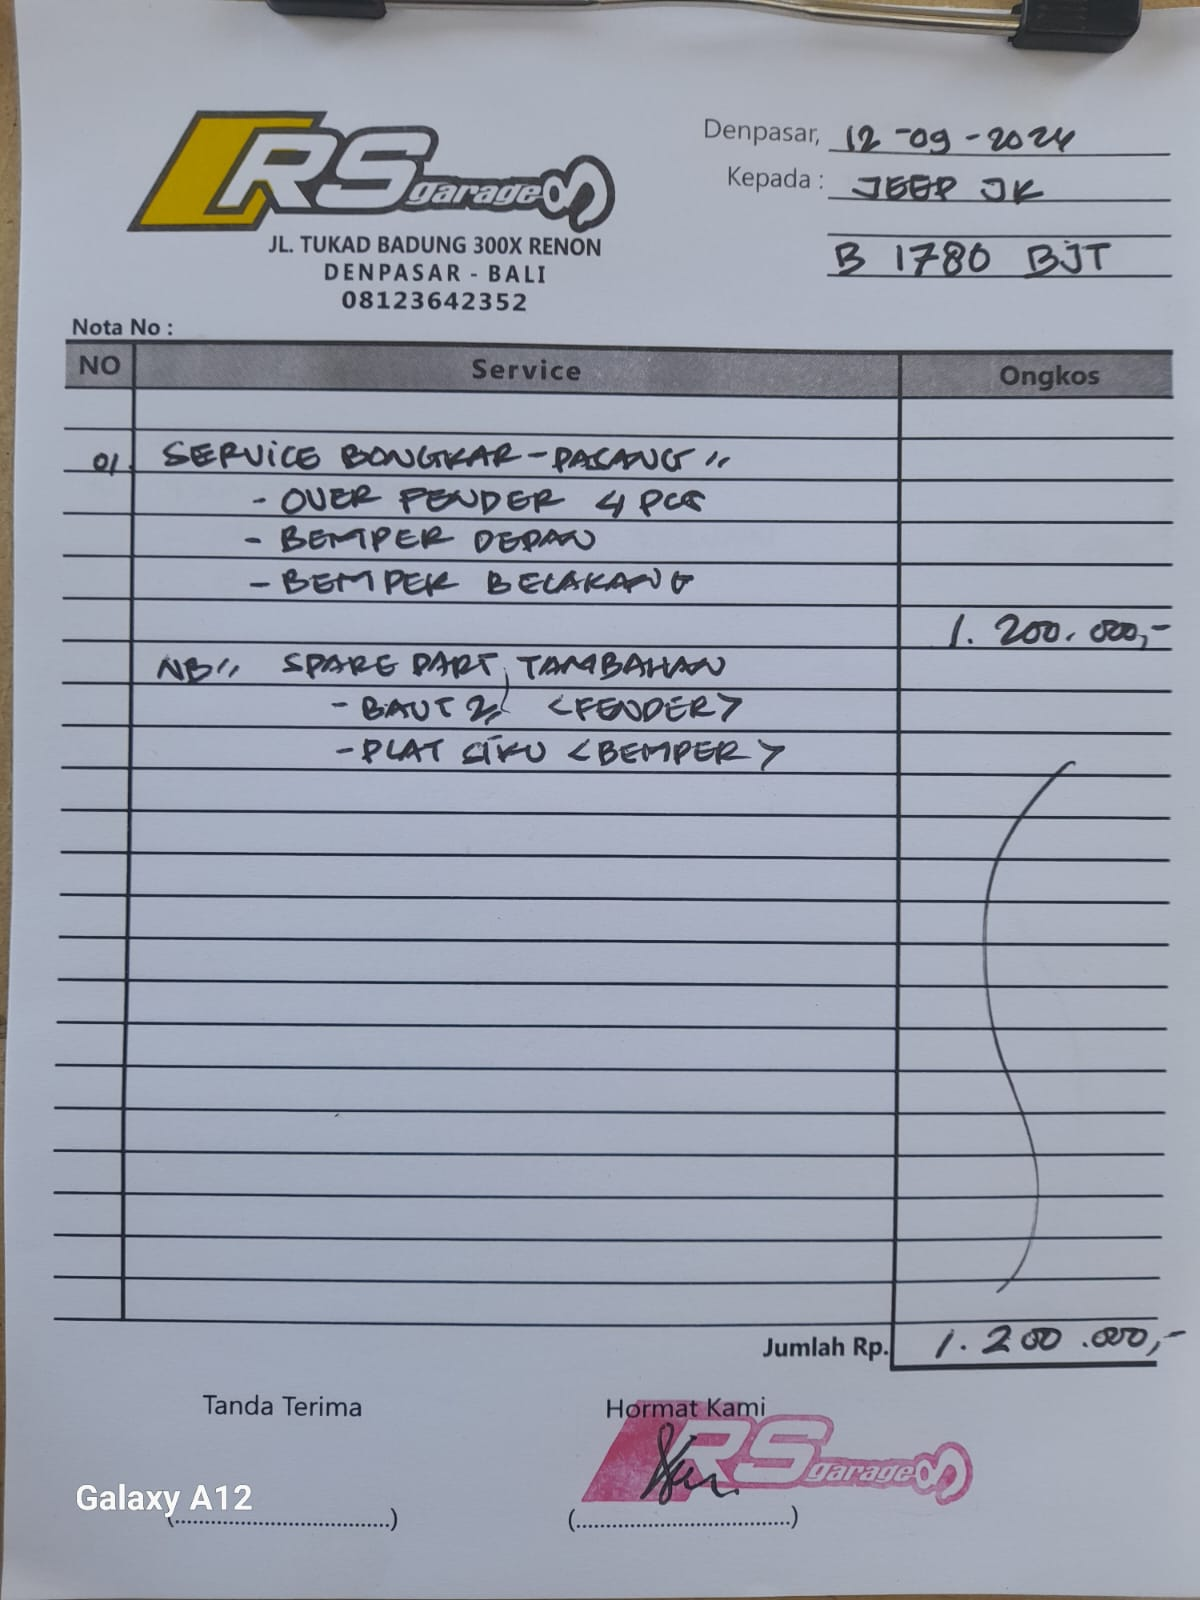 RS garage
JL. TUKAD BADUNG 300X RENON
DENPASAR - BALI
08123642352
Denpasar, 12-09-2024
Kepada : JEEP JK
B 1780 BJT
Nota No :
NO Service Ongkos
01. SERVICE BONGKAR-PASANG //
- OVER FENDER 4 PCS
- BEMPER DEPAN
- BEMPER BELAKANG
1.200.000,-
NB// SPARE PART, TAMBAHAN
- BAUT2 <FENDER>
- PLAT SIKU <BEMPER>
Jumlah Rp. 1.200.000,-
Tanda Terima Hormat Kami
RS garage
Galaxy A12
(....................................) (....................................)